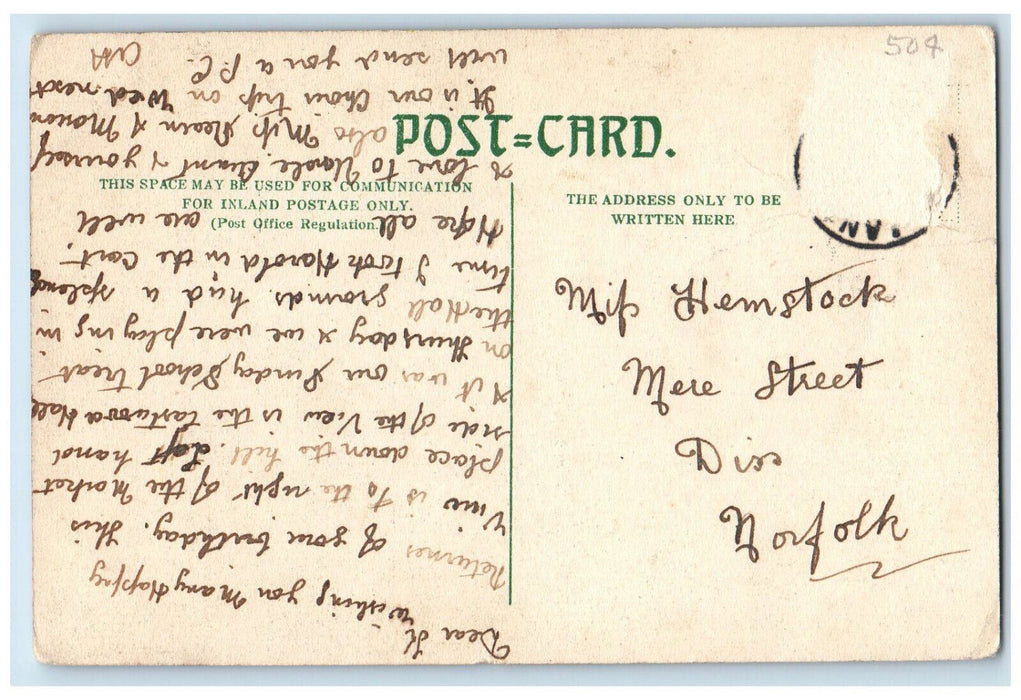 504
POST=CARD.
THIS SPACE MAY BE USED FOR COMMUNICATION
FOR INLAND POSTAGE ONLY.
(Post Office Regulation.)
THE ADDRESS ONLY TO BE
WRITTEN HERE
AN
Miss Hemstock
Mere Street
Diss
Norfolk
Dear H
Wishing you Many Happy
Returnes of your birthday. This
View is to the right of the Market
place down the hill. Left hand
side of the View is the Eastwood Hall
& it was our Sunday School treat
on Thursday & we were playing in
the Hall grounds had a splend
time I took Harold in the Cart.
Hope all are well
& love to Uncle. Aunt & yourself
also Miss &
It is our Choir trip on Wed. next
will send you a P.C.